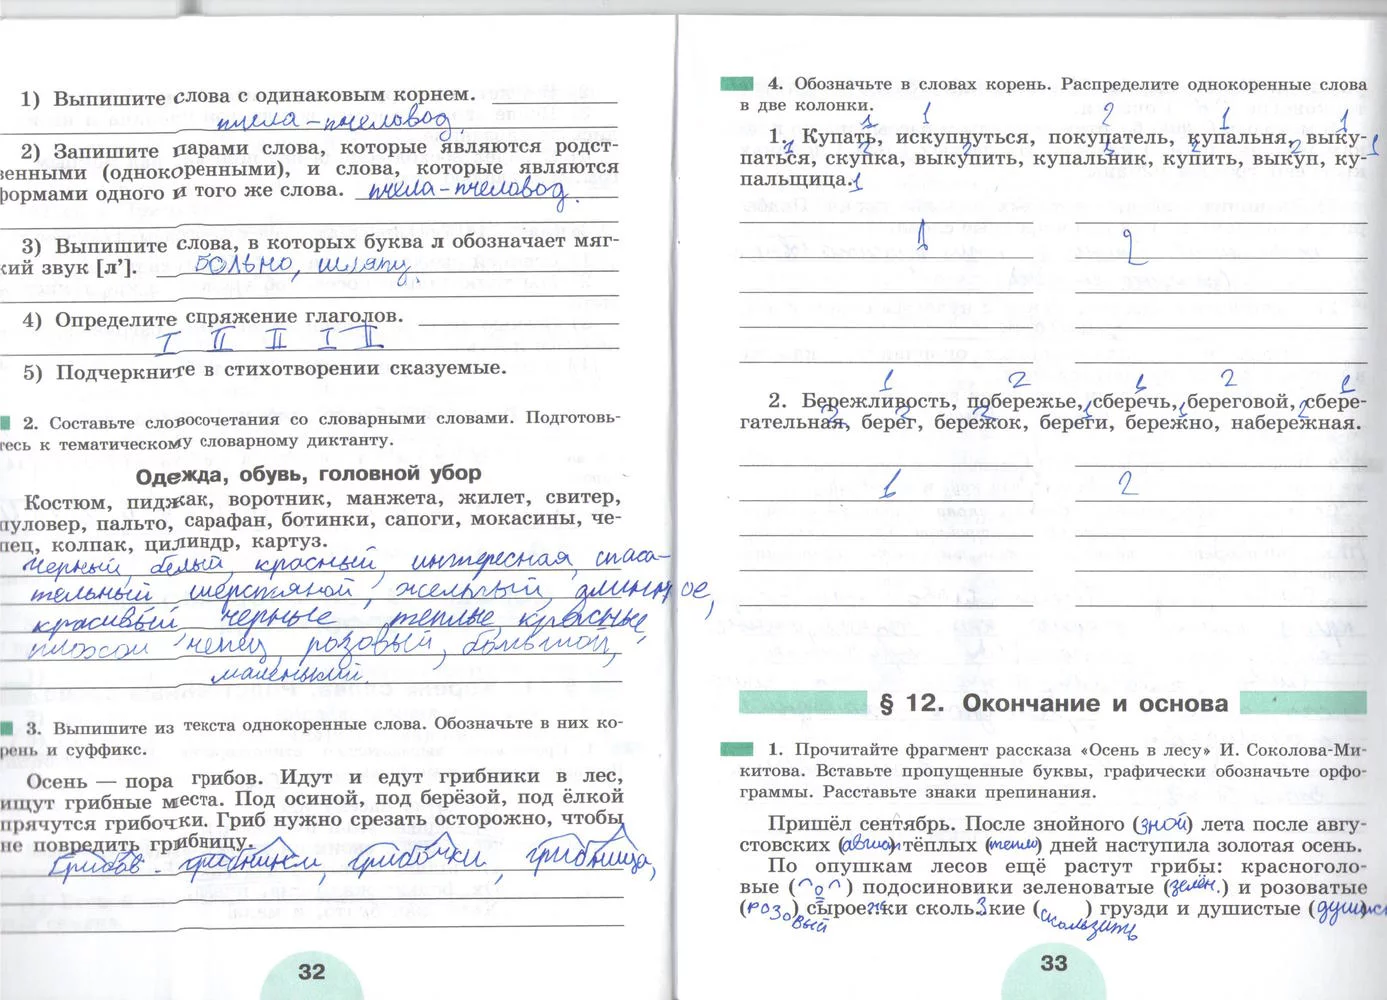 1) Выпишите слова с одинаковым корнем.
пчела - пчеловод.
2) Запишите парами слова, которые являются родст-
венными (однокоренными), и слова, которые являются
формами одного и того же слова. пчела-пчеловод.
3) Выпишите слова, в которых буква л обозначает мяг-
кий звук [л’]. больно, шляпу.
4) Определите спряжение глаголов.
I II II I II
5) Подчеркните в стихотворении сказуемые.
2. Составьте словосочетания со словарными словами. Подготовь-
тесь к тематическому словарному диктанту.
Одежда, обувь, головной убор
Костюм, пиджак, воротник, манжета, жилет, свитер,
пуловер, пальто, сарафан, ботинки, сапоги, мокасины, че-
пец, колпак, цилиндр, картуз.
черный, белый, красный, интересная, спаса-
тельный шерстяной, желтый, длинное,
красивый черные теплые красные
плохой чепец розовый, большой,
маленький.
3. Выпишите из текста однокоренные слова. Обозначьте в них ко-
рень и суффикс.
Осень — пора грибов. Идут и едут грибники в лес,
ищут грибные места. Под осиной, под берёзой, под ёлкой
прячутся грибочки. Гриб нужно срезать осторожно, чтобы
не повредить грибницу.
Грибов - грибники, грибочки, грибница,
32
4. Обозначьте в словах корень. Распределите однокоренные слова
в две колонки.
1 1 2 1 1
1. Купать, искупнуться, покупатель, купальня, выку-
паться, скупка, выкупить, купальник, купить, выкуп, ку-
пальщица. 1
1 2
1 2 1 2 1
2. Бережливость, побережье, сберечь, береговой, сбере-
гательная, берег, бережок, береги, бережно, набережная.
1 2
§ 12. Окончание и основа
1. Прочитайте фрагмент рассказа «Осень в лесу» И. Соколова-Ми-
китова. Вставьте пропущенные буквы, графически обозначьте орфо-
граммы. Расставьте знаки препинания.
Пришёл сентябрь. После знойного (зной) лета после авгу-
стовских (август) тёплых (тепло) дней наступила золотая осень.
По опушкам лесов ещё растут грибы: красноголо-
вые (о) подосиновики зеленоватые (зелён.) и розоватые
(розовый) сырое..ки сколь.зкие (скользить) грузди и душистые (
33